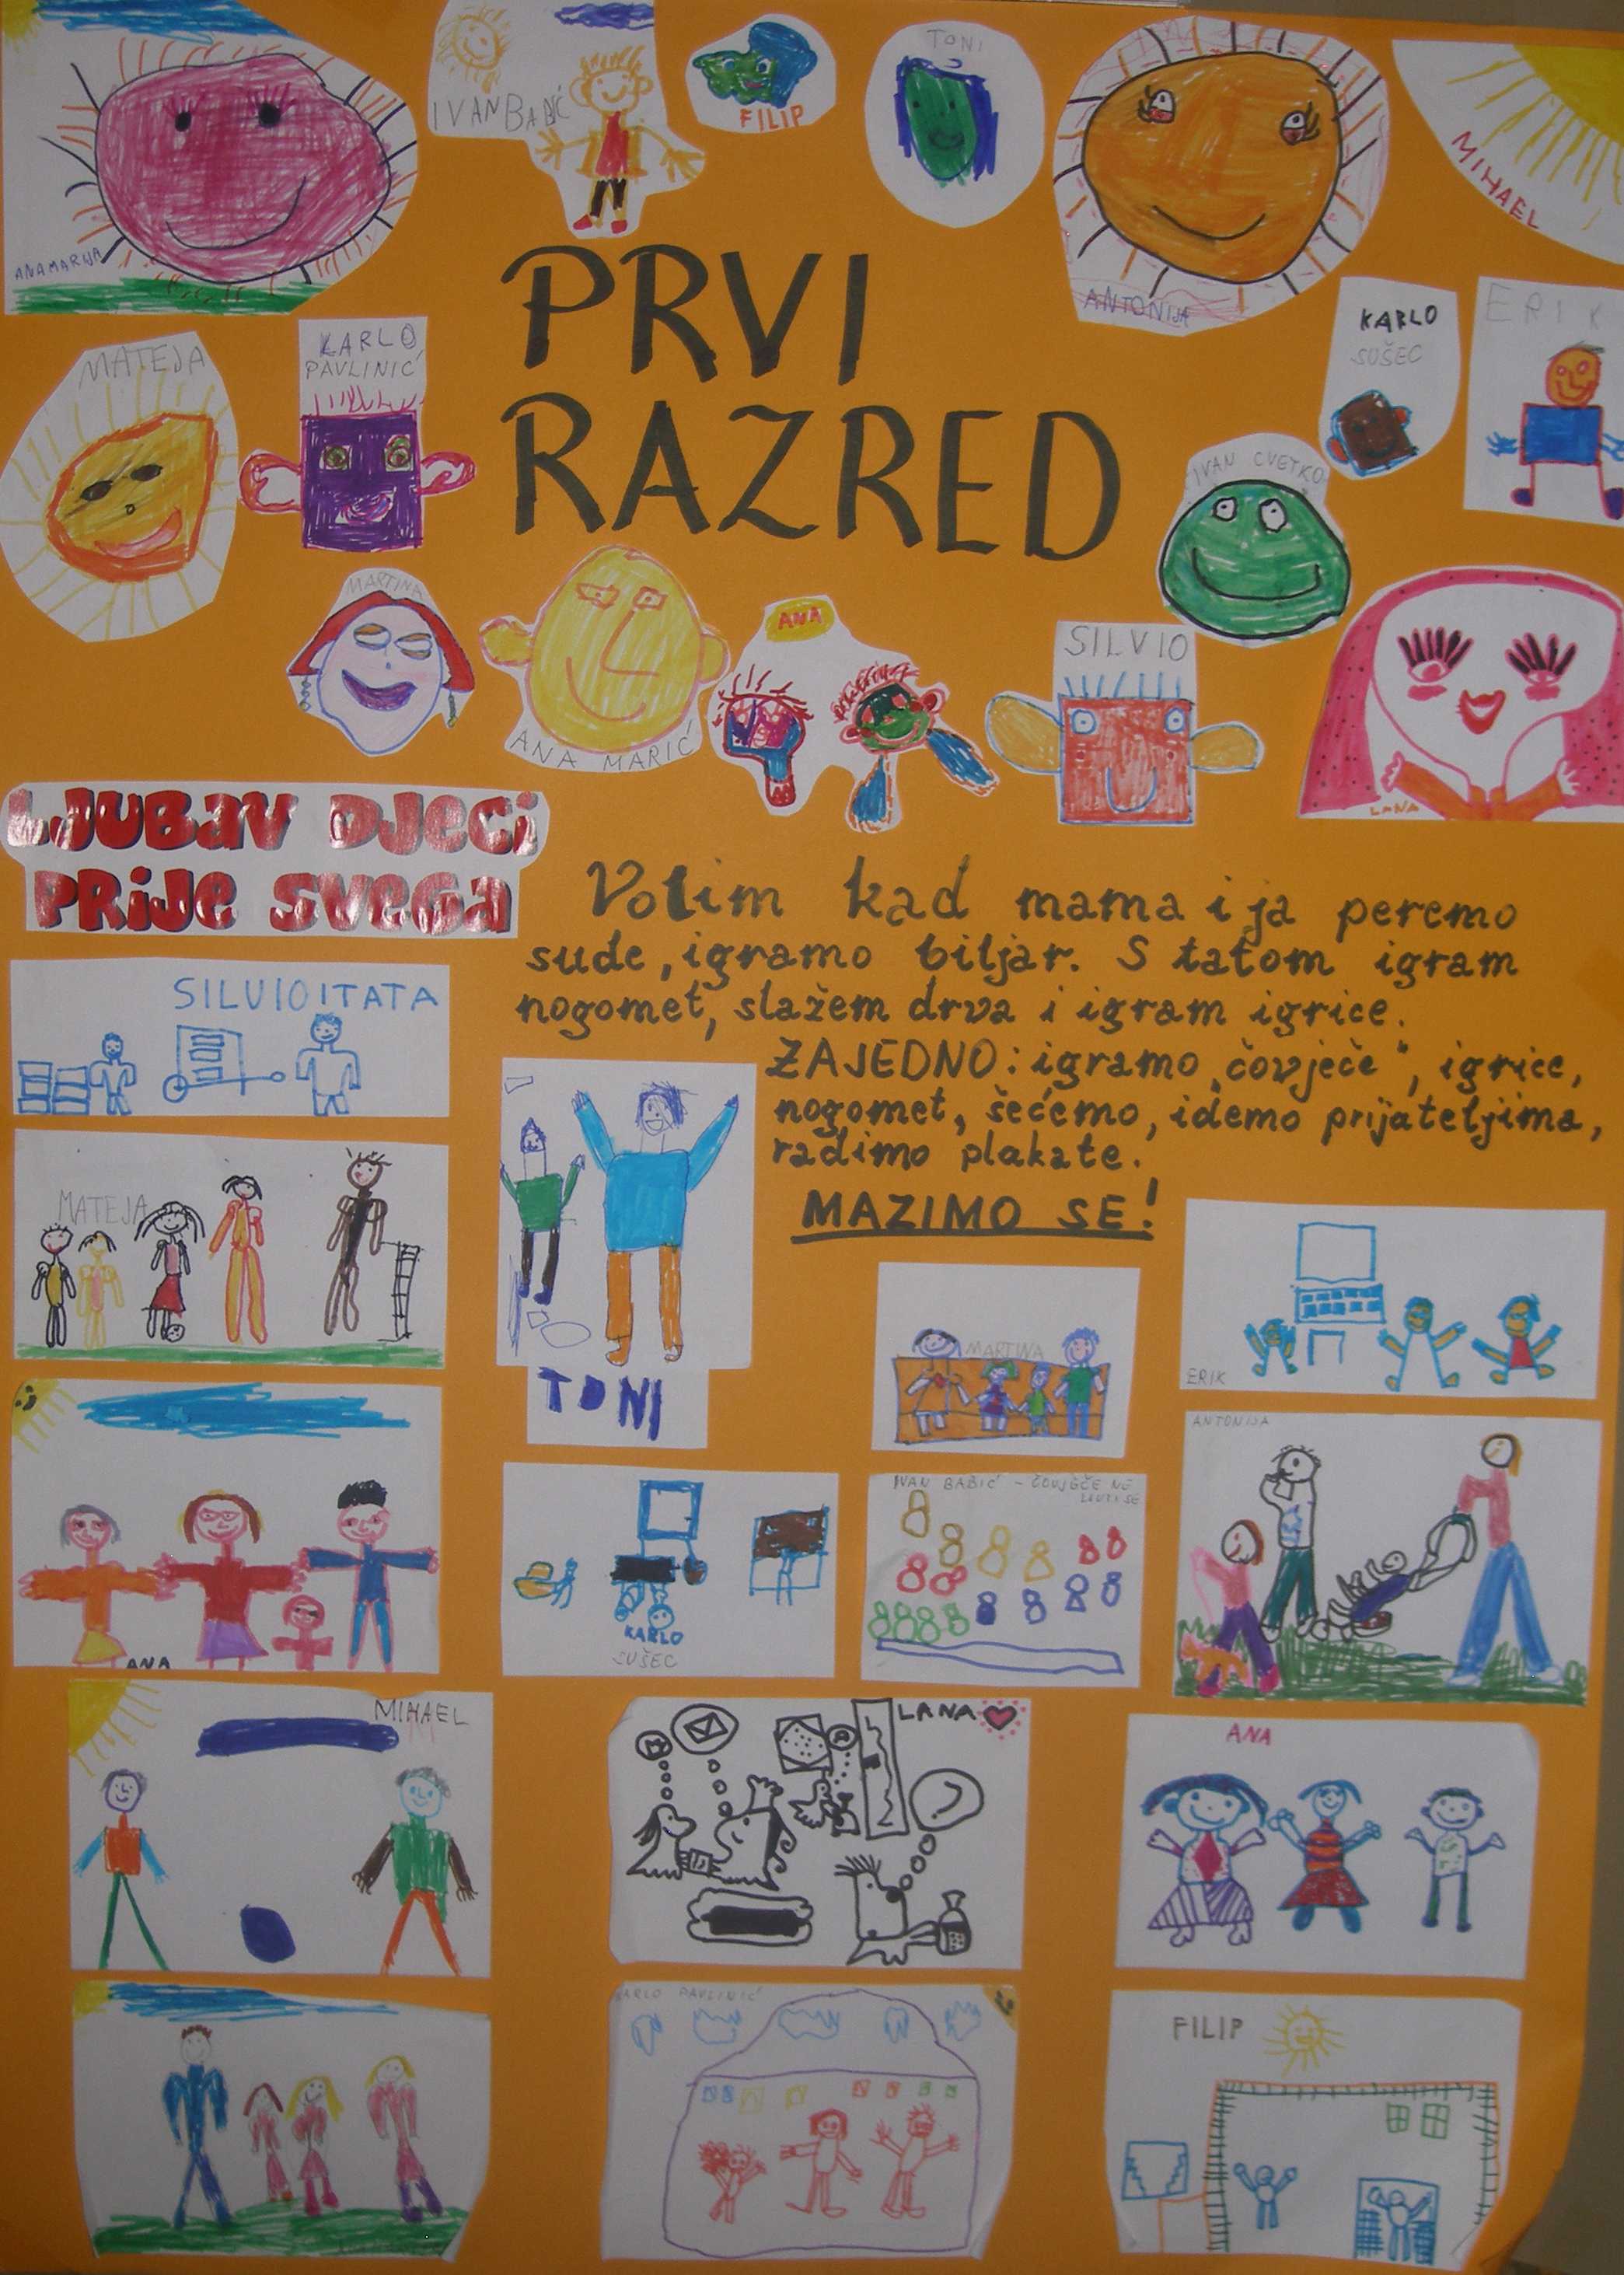 IVAN BABIĆ
FILIP
TONI
MIHAEL
ANAMARIJA
ANTONIJA
KARLO
SUŠEC
ERIK
MATEJA
KARLO
PAVLINIĆ
PRVI
RAZRED
IVAN CVETKO
MARTINA
ANA MARIĆ
ANA
SILVIO
LANA
LJUBAV DJECI
PRIJE SVEGA
Volim kad mama i ja peremo
suđe, igramo biljar. S tatom igram
nogomet, slažem drva i igram igrice.
ZAJEDNO: igramo „čovječe", igrice,
nogomet, šećemo, idemo prijateljima,
radimo plakate.
MAZIMO SE!
SILVIO I TATA
MATEJA
TONI
MARTINA
ERIK
ANTONIJA
ANA
KARLO
SUŠEC
IVAN BABIĆ - ČOVJEČE NE
LJUTI SE
MIHAEL
LANA
ANA
KARLO PAVLINIĆ
FILIP